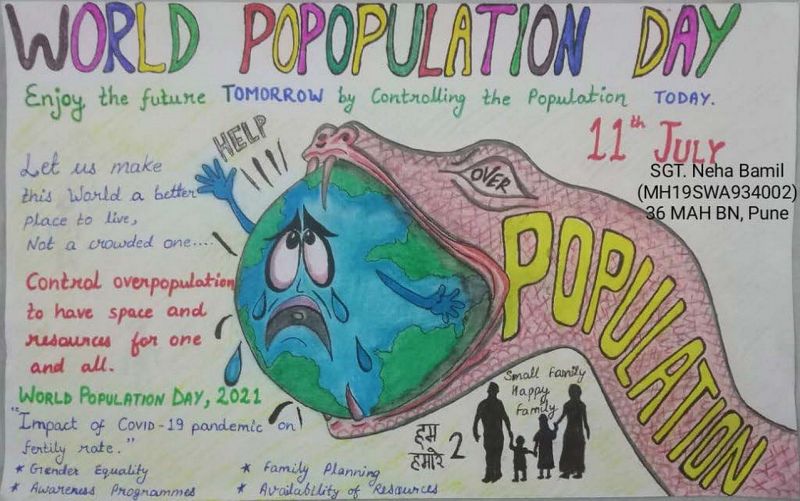 WORLD POPOPULATION DAY
Enjoy the future TOMORROW by Controlling the Population TODAY.
11th JULY
SGT. Neha Bamil
(MH19SWA934002)
36 MAH BN, Pune
HELP
OVER
POPULATION
Let us make
this World a better
place to live,
Not a crowded one....
Control overpopulation
to have space and
resources for one
and all.
WORLD POPULATION DAY, 2021
"Impact of COVID-19 pandemic on
fertility rate."
* Gender Equality
* Awareness Programmes
* Family Planning
* Availability of Resources
Small Family
Happy
Family
हम 2
हमारे